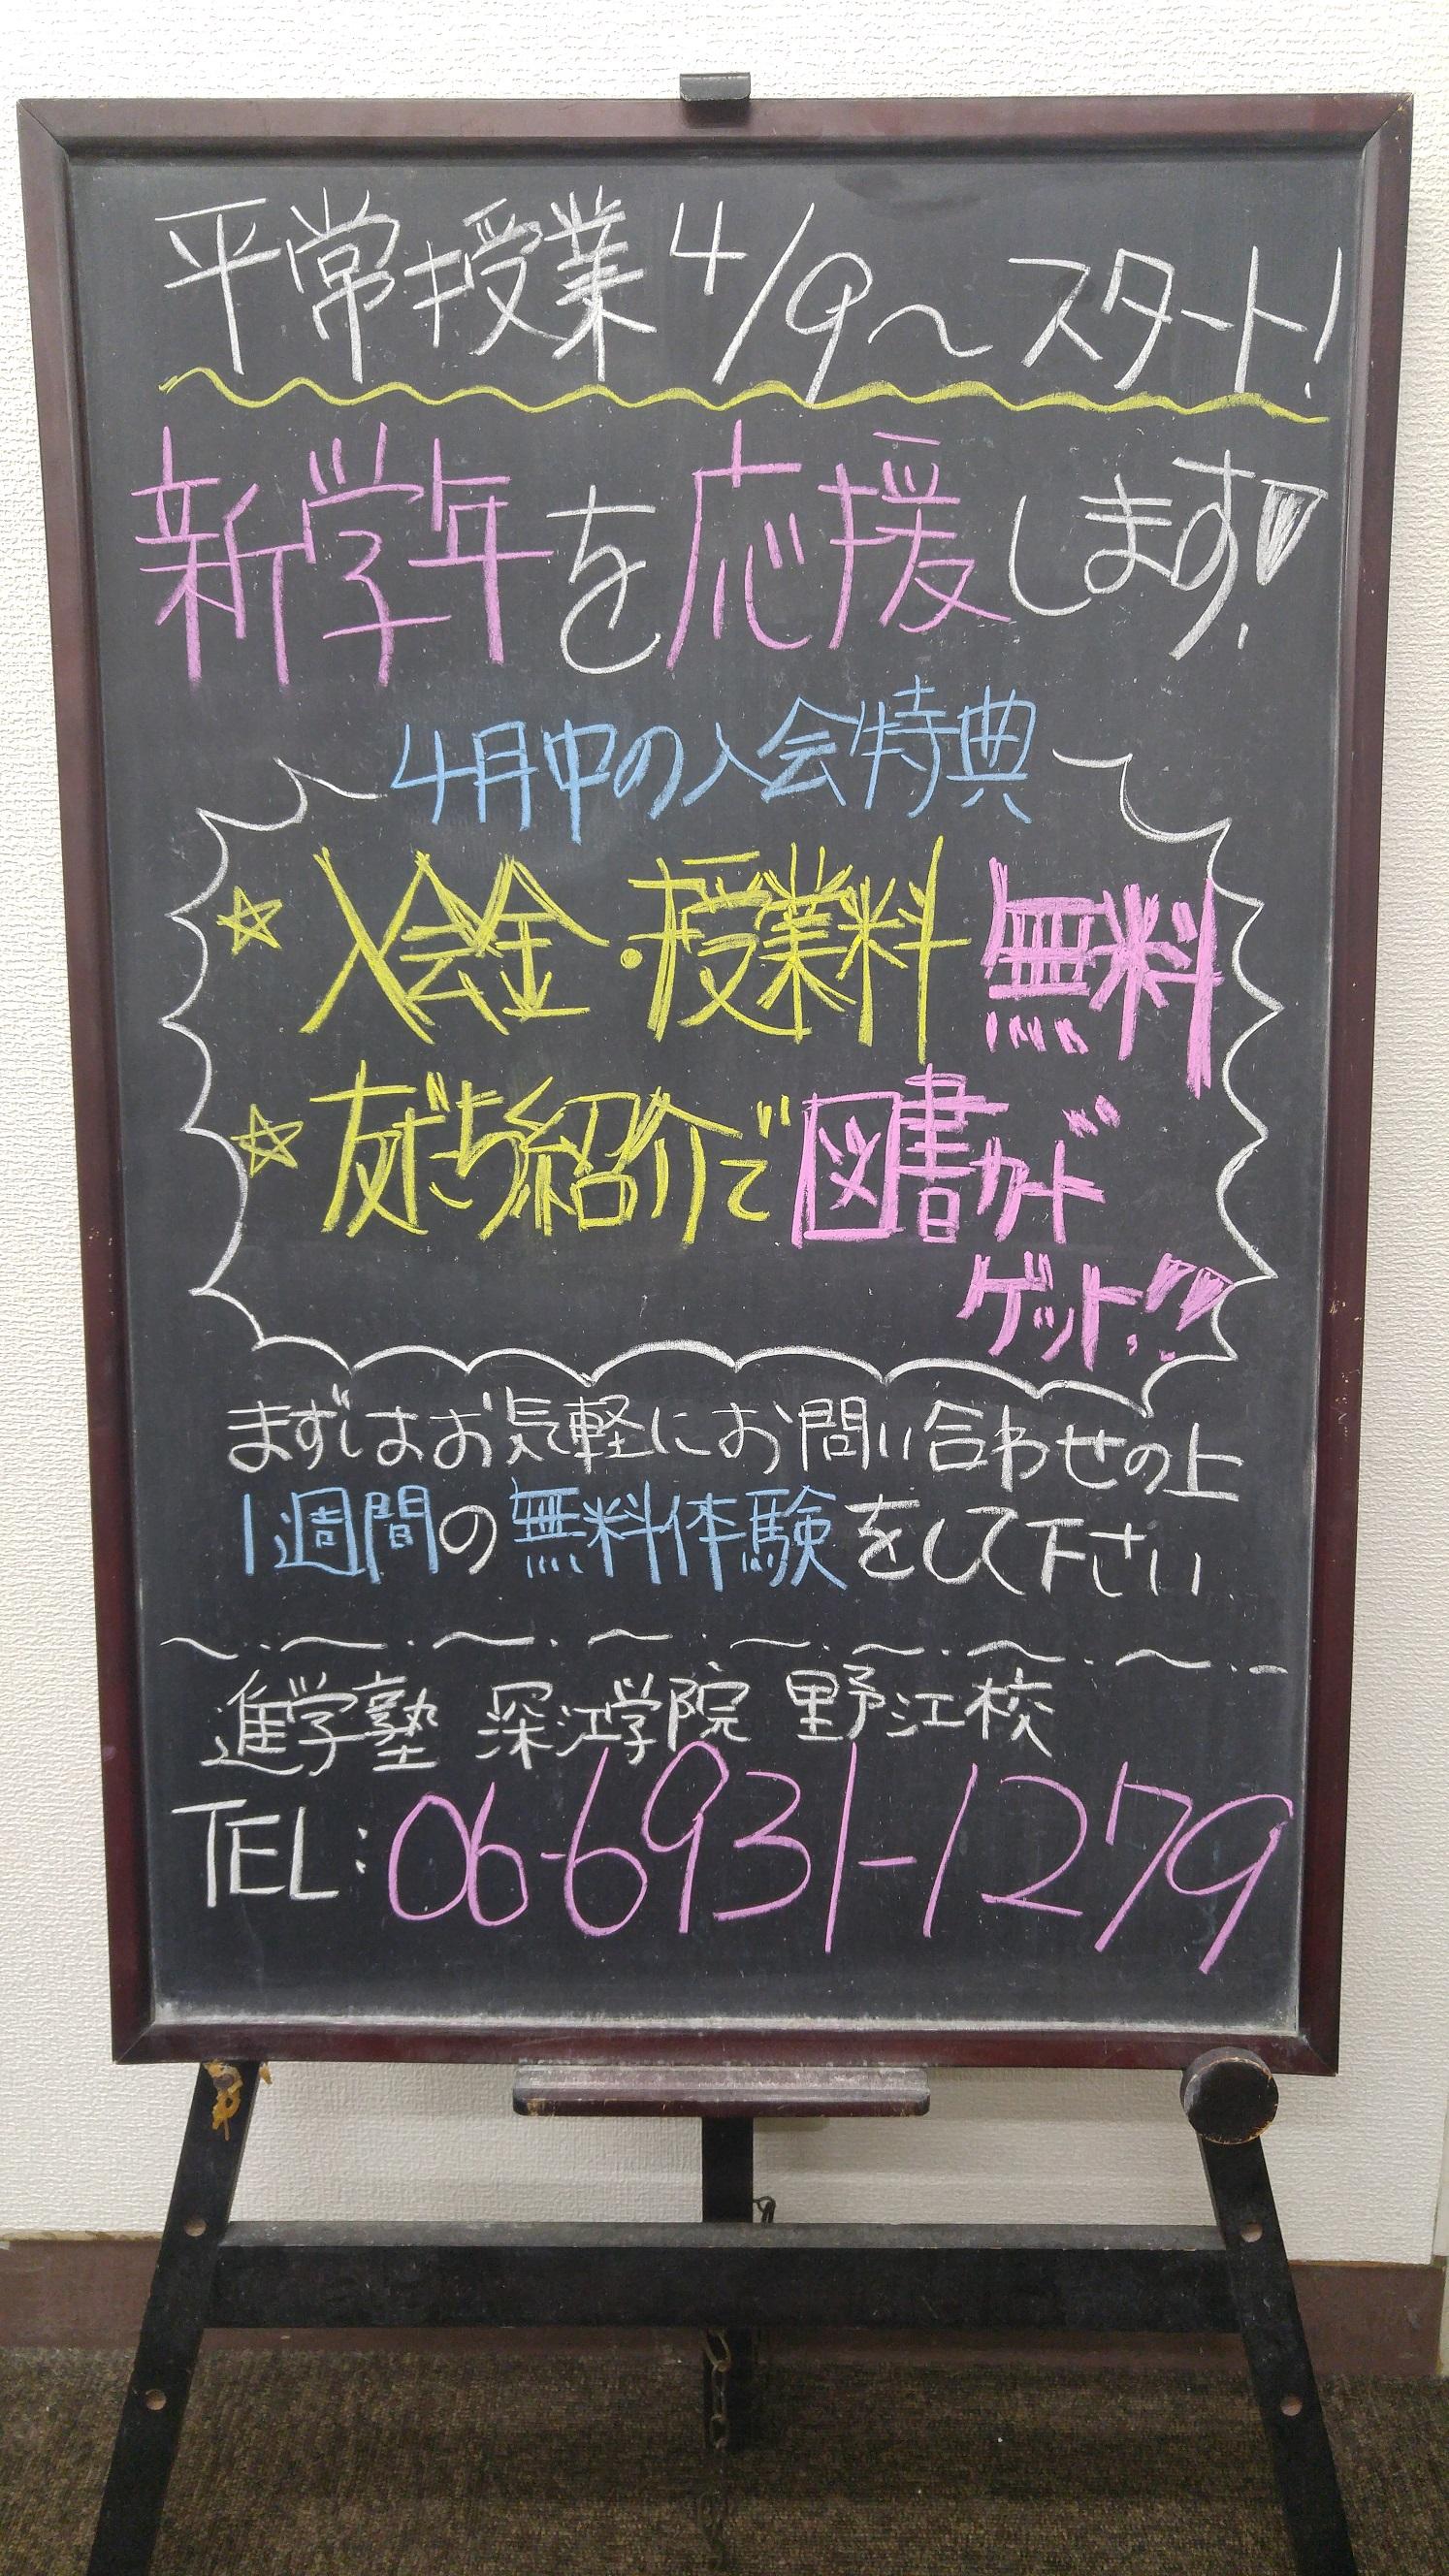 平常授業 4/9～スタート!
新学年を応援します!
4月中の入会特典
☆入会金・授業料 無料
☆友だち紹介で図書カード
ゲット!!
まずはお気軽にお問い合わせの上
1週間の無料体験をして下さい
進学塾 深江学院 野江校
TEL:06-6931-1279